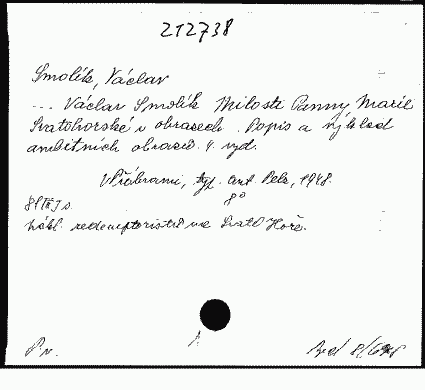 212738
Smolík, Václav
... Václav Smolík Milosti Panny Marie
Svatohorské v obrazech. Popis a výklad
ambitních obrazů. 4. vyd.
V Příbrami, typ. Ant. Pelz, 1948.
8°
nákl. redemptoristů na Svaté Hoře.